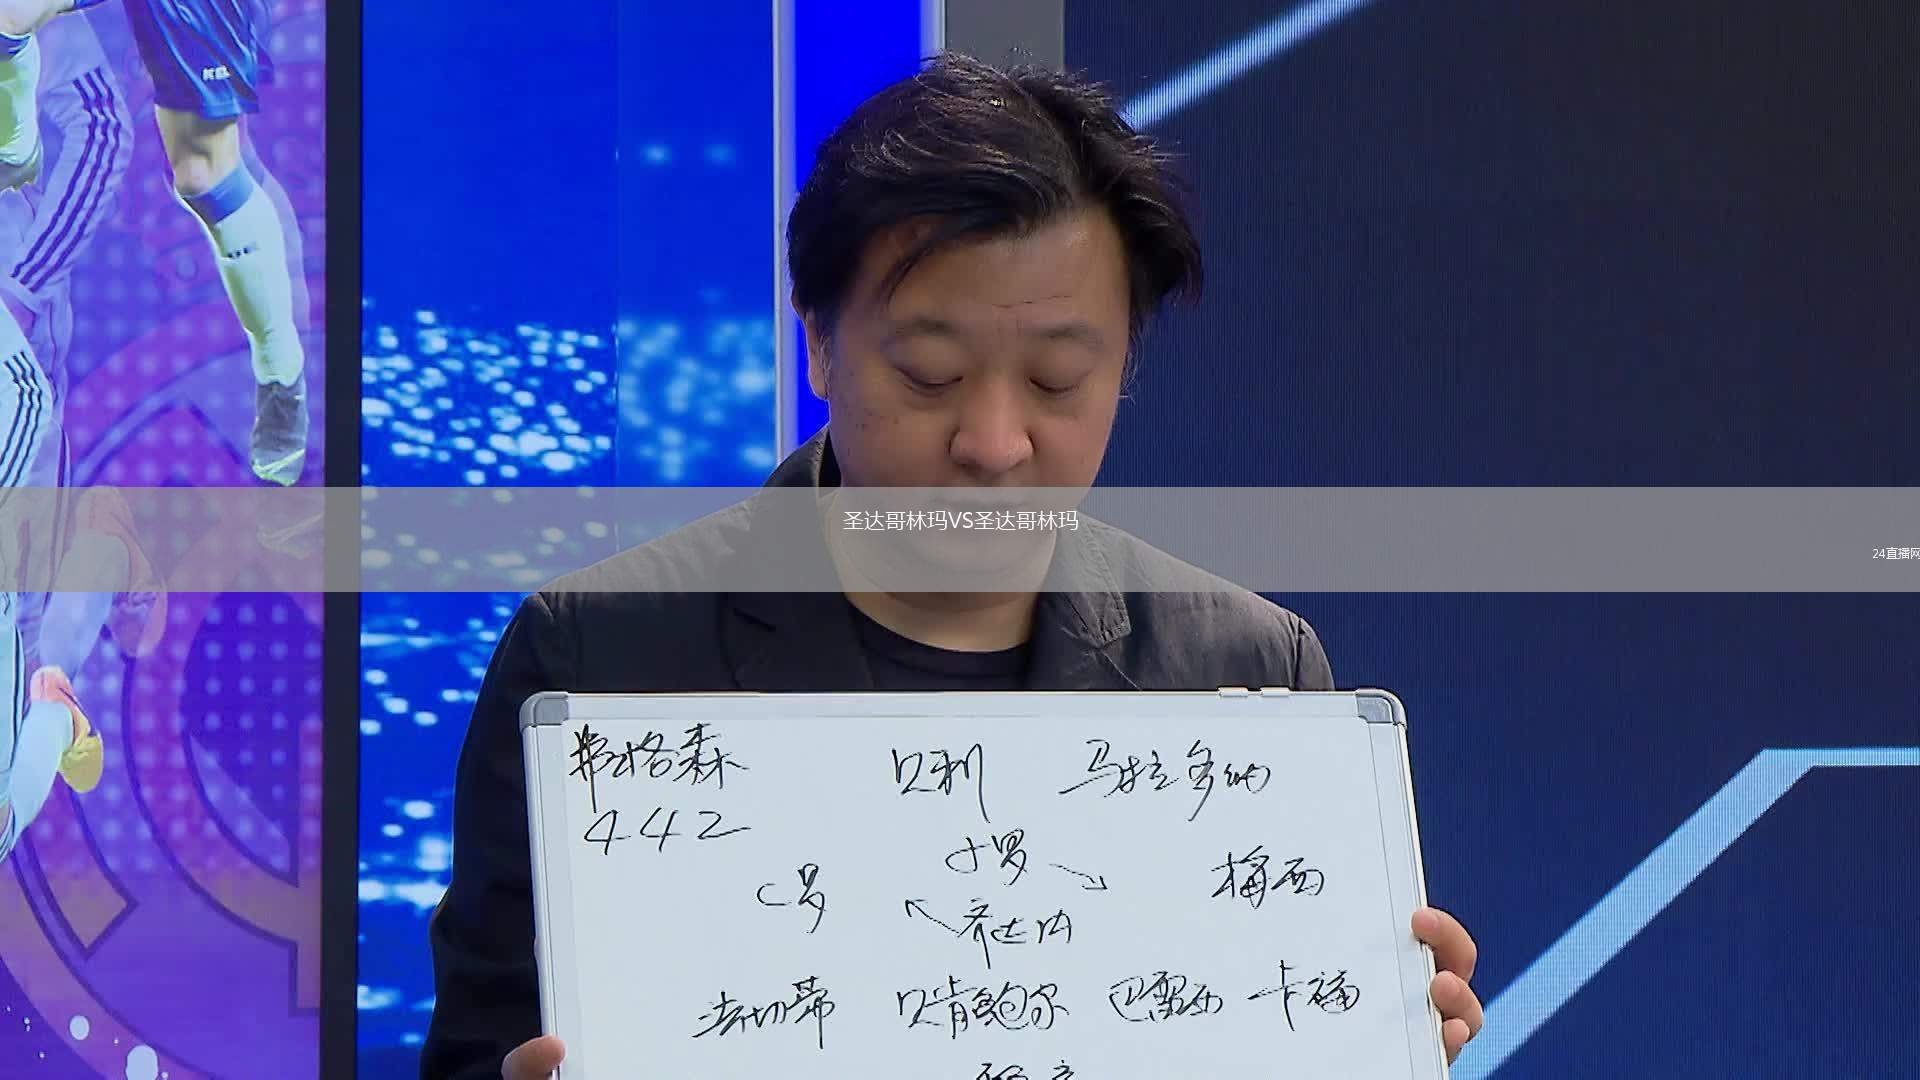 圣达哥林玛VS圣达哥林玛
24直播网
弗格森 贝利 马拉多纳
442
小罗
C罗 梅西
齐达内
法切蒂 贝肯鲍尔 巴雷西 卡福